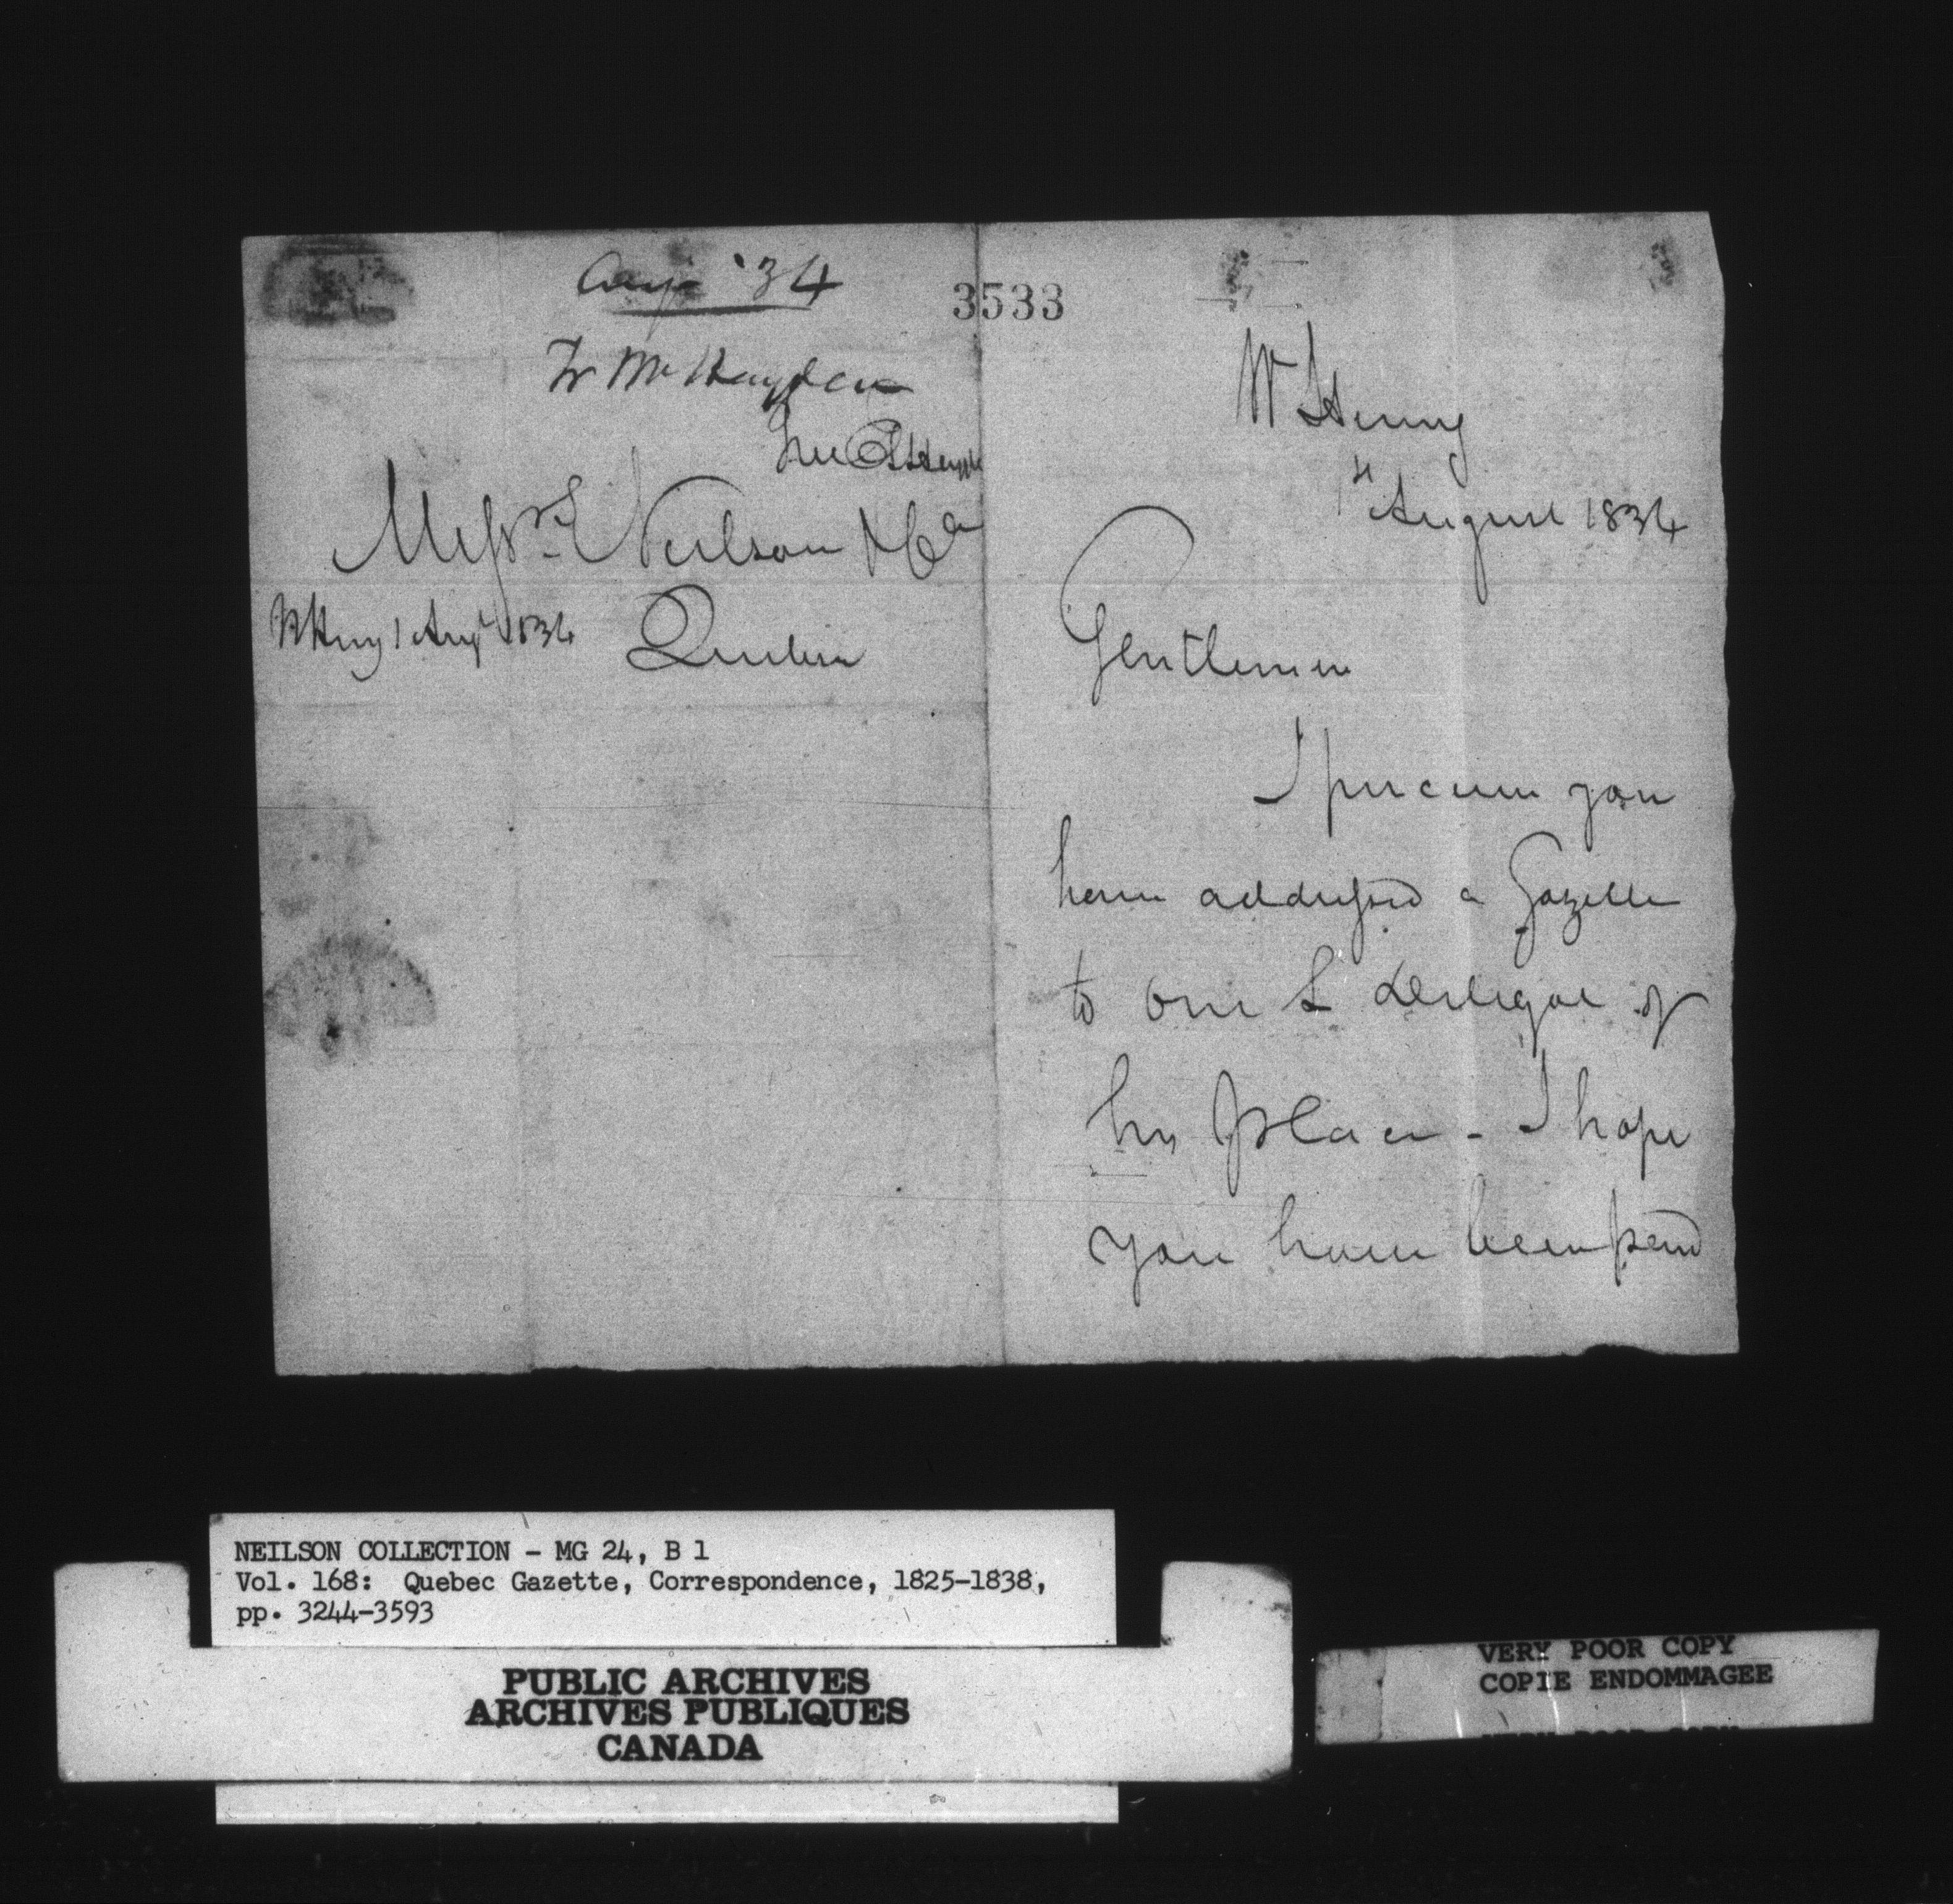 Aug '34
3533
Fr Mr Hayden
Messrs Neilson & Co
W Heny 1 Augt 1834
Quebec
W Henry
1st August 1834
Gentlemen
I perceive you
have addressed a Gazette
to one L
his place - I hope
you have been paid
NEILSON COLLECTION - MG 24, B 1
Vol. 168: Quebec Gazette, Correspondence, 1825-1838,
pp. 3244-3593
PUBLIC ARCHIVES
ARCHIVES PUBLIQUES
CANADA
VERY POOR COPY
COPIE ENDOMMAGEE